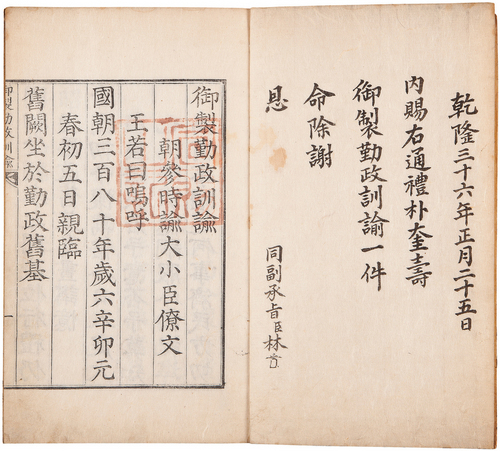 乾隆三十六年正月二十五日
內賜右通禮朴奎壽
御製勤政訓諭一件
命除謝
恩
同副承旨臣林
御製勤政訓諭
朝參時諭大小臣僚文
王若曰嗚呼
國朝三百八十年歲六辛卯元
春初五日親臨
舊闕坐於勤政舊基
御製勤政訓諭